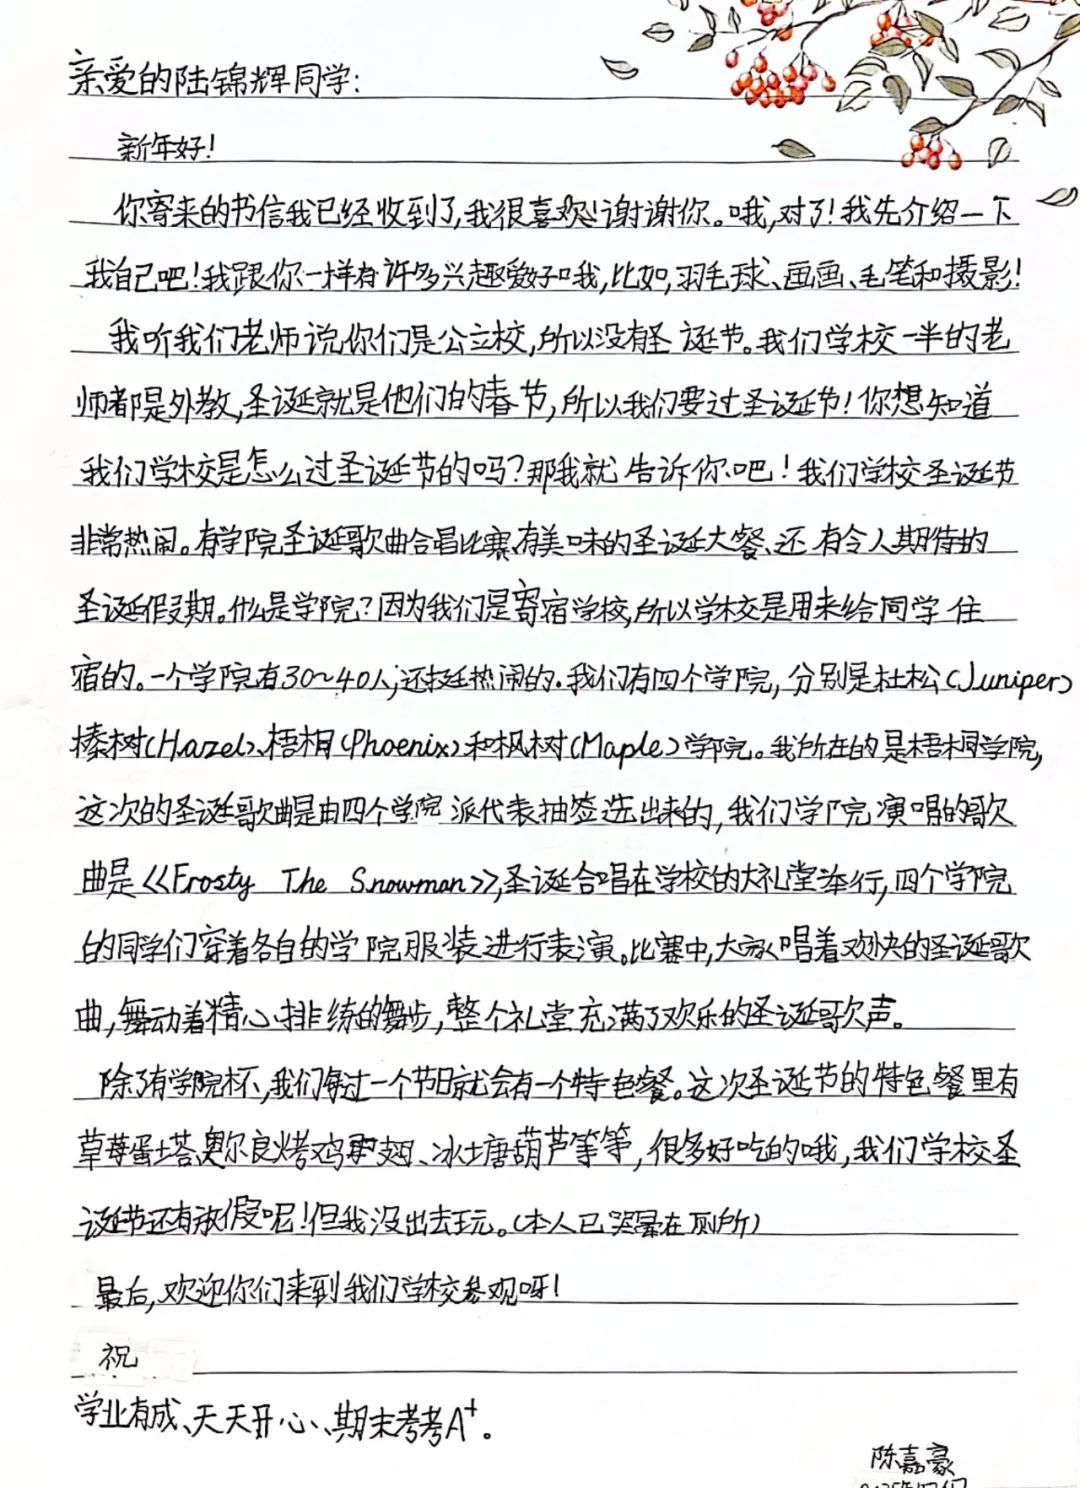 亲爱的陆锦辉同学:
新年好!
你寄来的书信我已经收到了,我很喜欢!谢谢你。哦,对了!我先介绍一下
我自己吧!我跟你一样有许多兴趣爱好哦,比如,羽毛球、画画、毛笔和摄影!
我听我们老师说你们是公立校,所以没有圣诞节。我们学校一半的老
师都是外教,圣诞就是他们的春节,所以我们要过圣诞节!你想知道
我们学校是怎么过圣诞节的吗?那我就告诉你吧!我们学校圣诞节
非常热闹。有学院圣诞歌曲合唱比赛、有美味的圣诞大餐、还有令人期待的
圣诞假期。什么是学院?因为我们是寄宿学校,所以学校是用来给同学住
宿的。一个学院有30~40人,还挺热闹的.我们有四个学院,分别是杜松(Juniper)
榛树(Hazel)、梧桐(Phoenix)和枫树(Maple)学院。我所在的是梧桐学院,
这次的圣诞歌曲是由四个学院派代表抽签选出来的,我们学院演唱的歌
曲是《Frosty The Snowman》,圣诞合唱在学校的大礼堂举行,四个学院
的同学们穿着各自的学院服装进行表演。比赛中,大家唱着欢快的圣诞歌
曲,舞动着精心排练的舞步,整个礼堂充满了欢乐的圣诞歌声。
除了有学院杯,我们每过一个节日就会有一个特色餐。这次圣诞节的特色餐里有
草莓蛋塔、奥尔良烤鸡翅、冰塘葫芦等等,很多好吃的哦,我们学校圣
诞节还有放假呢!但我没出去玩。(本人已哭晕在厕所)
最后,欢迎你们来到我们学校参观呀!
祝
学业有成、天天开心、期末考考A⁺。
陈嘉豪